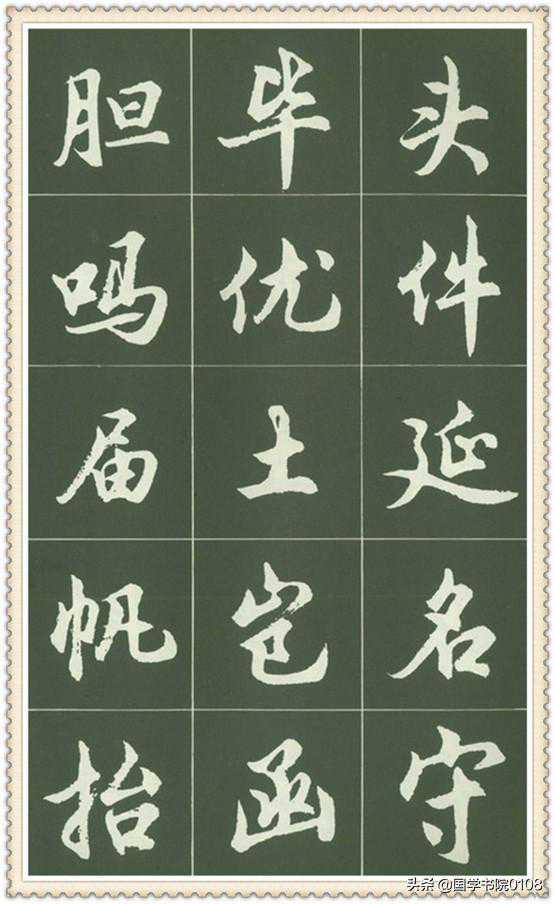 胆毕头
吗优件
届土延
帆岂名
抬函守
头条@国学书院0108